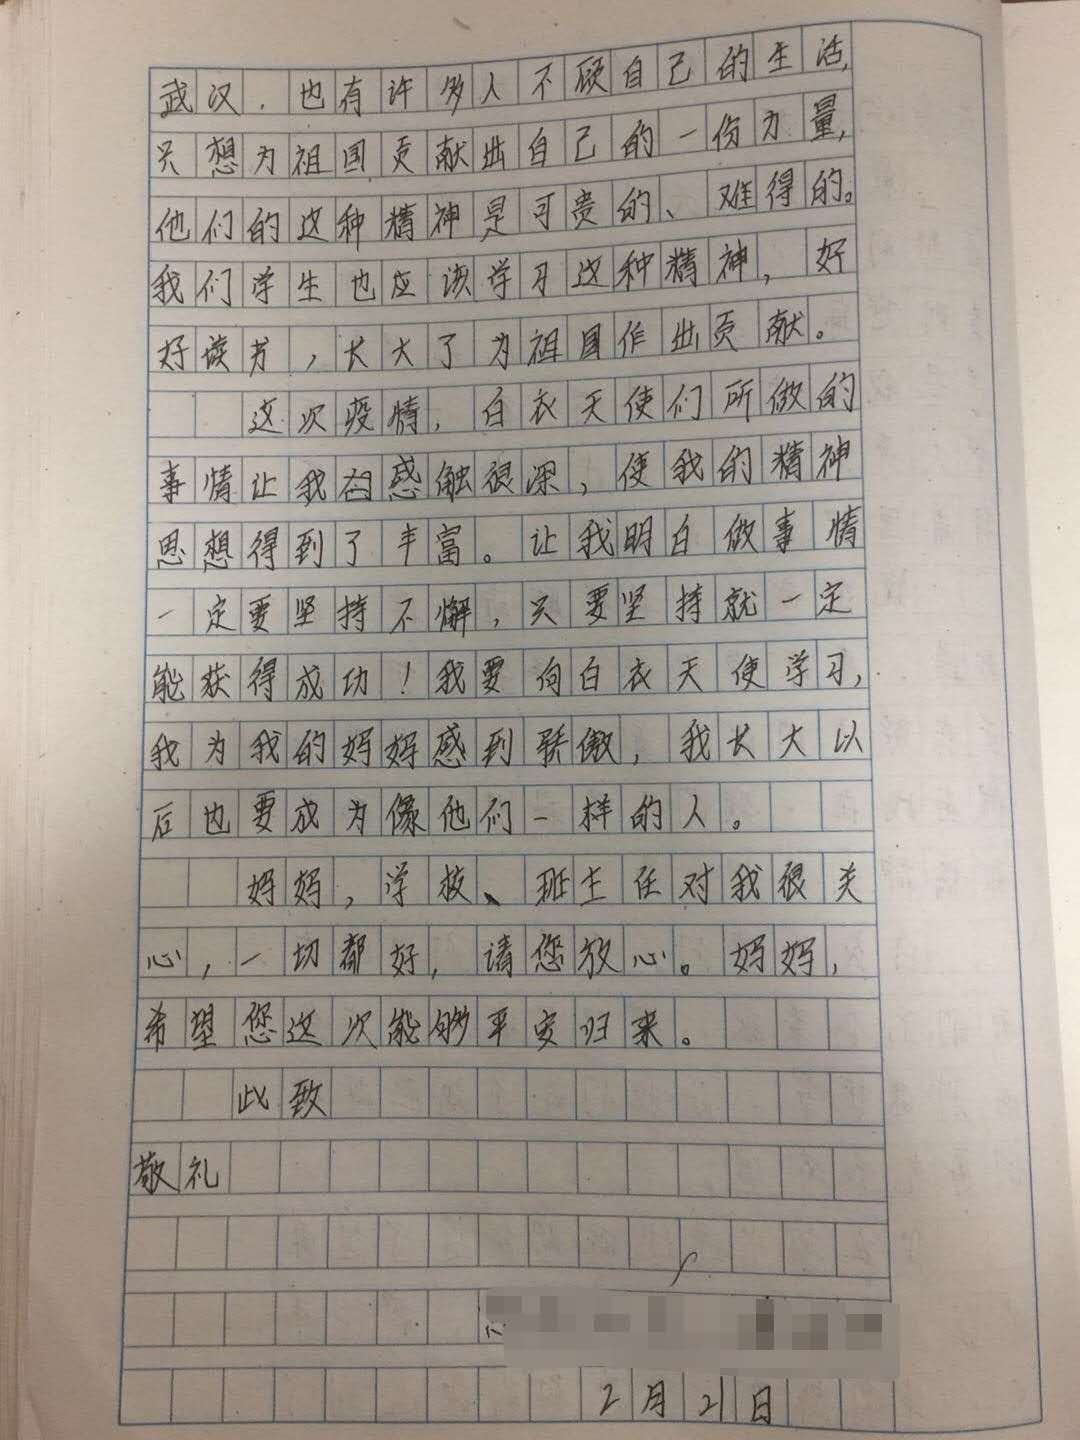 武汉，也有许多人不顾自己的生活，
只想为祖国贡献出自己的一份力量，
他们的这种精神是可贵的、难得的。
我们学生也应该学习这种精神，好
好读书，长大了为祖国作出贡献。
这次疫情，白衣天使们所做的
事情让我感触很深，使我的精神
思想得到了丰富。让我明白做事情
一定要坚持不懈，只要坚持就一定
能获得成功！我要向白衣天使学习，
我为我的妈妈感到骄傲，我长大以
后也要成为像他们一样的人。
妈妈，学校、班主任对我很关
心，一切都好，请您放心。妈妈，
希望您这次能够平安归来。
此致
敬礼
2月21日